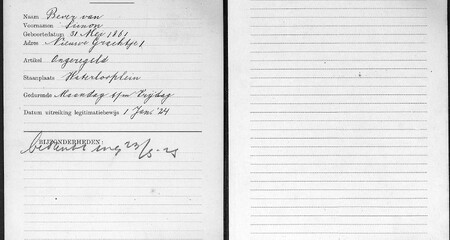 Naam Bever van
Voornamen Simon
Geboortedatum 31 Mei 1861
Adres Nieuwe Grachtje 1
Artikel Ongeregeld
Staanplaats Waterlooplein
Gedurende Maandag t/m Vrijdag
Datum uitreiking legitimatiebewijs 1 Juni '24
BIJZONDERHEDEN:
bedankt 23/5-25